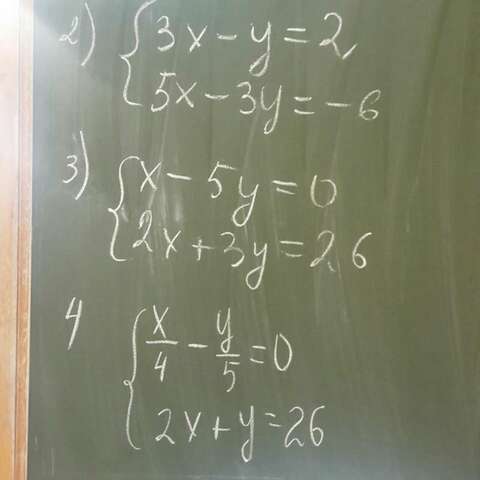 2) { 3x - y = 2
5x - 3y = -6
3) { x - 5y = 0
2x + 3y = 26
4 { x/4 - y/5 = 0
2x + y = 26